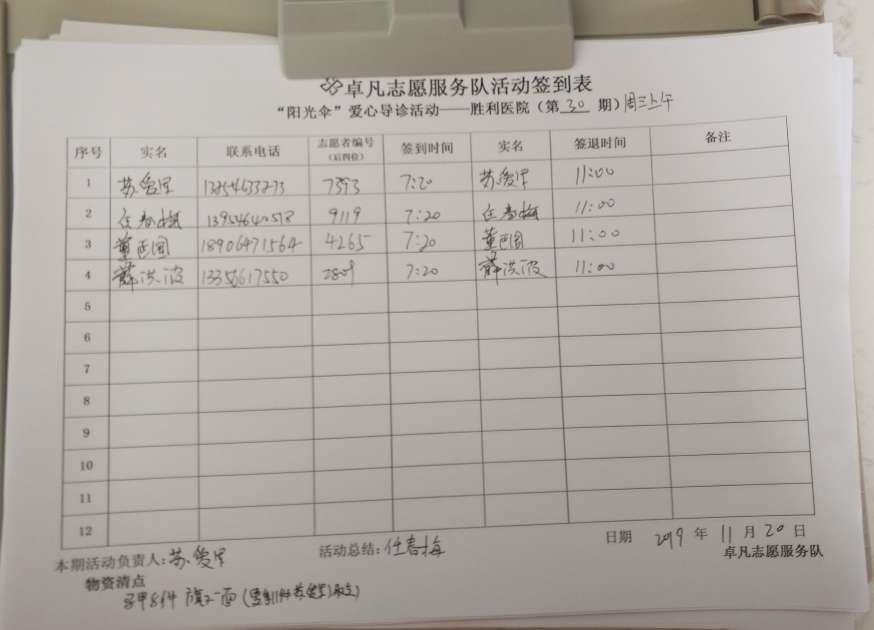 卓凡志愿服务队活动签到表
“阳光伞”爱心导诊活动——胜利医院（第 30 期）周三上午
序号 实名 联系电话 志愿者编号（后四位） 签到时间 实名 签退时间 备注
1 苏爱军 7393 7:20 苏爱军 11:00
2 任春梅 9119 7:20 任春梅 11:00
3 董 18906471564 4265 7:20 董 11:00
4 薛洪波 13356617550 7:20 薛洪波 11:00
5
6
7
8
9
10
11
12
本期活动负责人：苏爱军 活动总结：任春梅 日期 2019 年 11 月 20 日
卓凡志愿服务队
物资清点
马甲8件 旗子一面